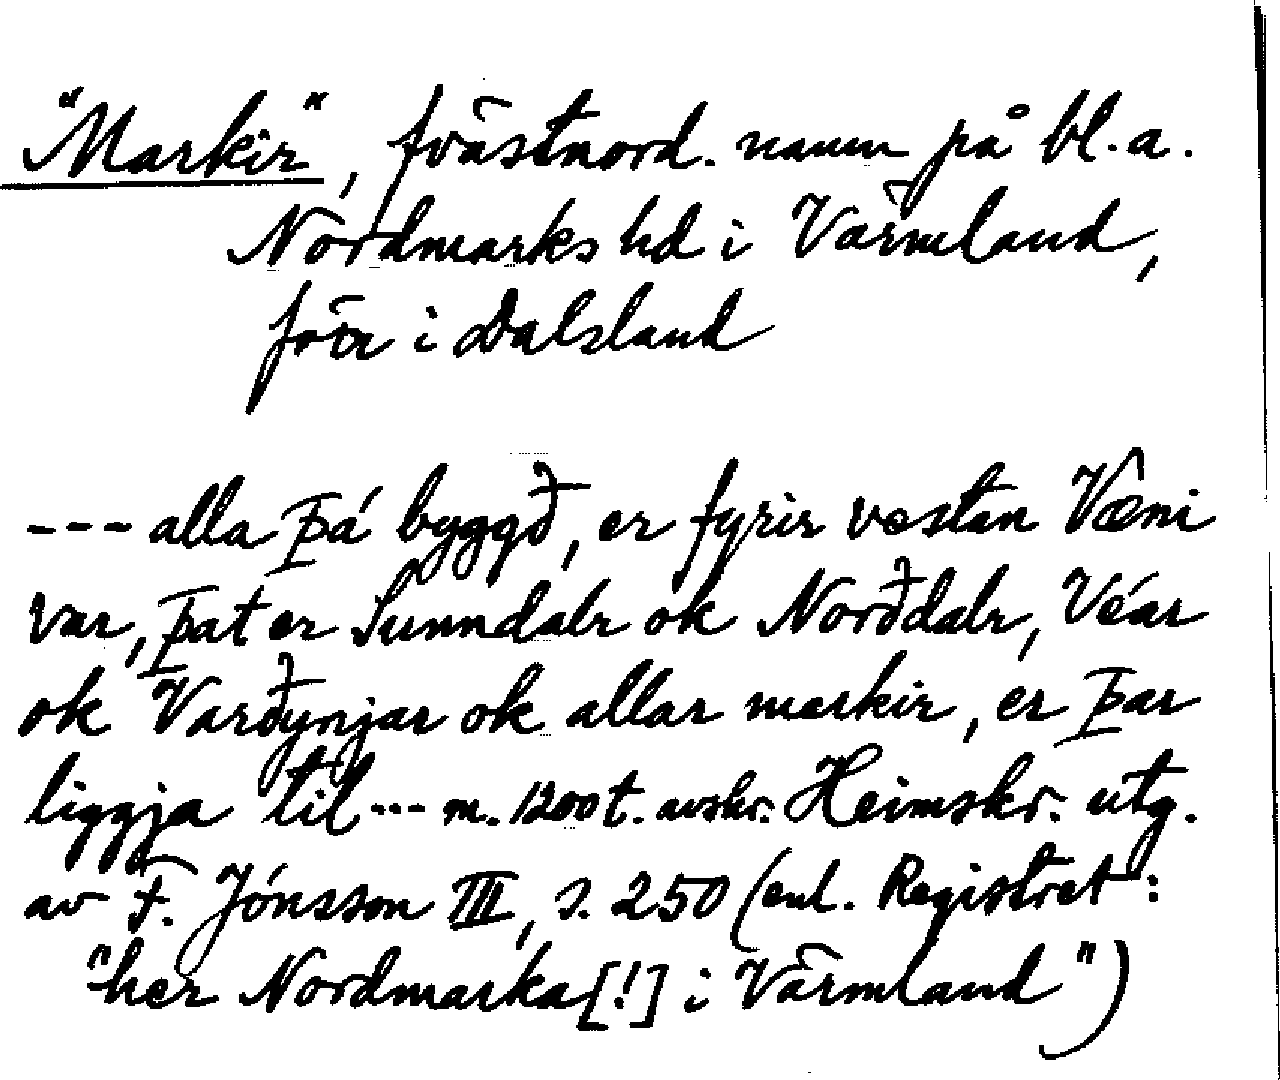 "Markir", fvästnord. namn på bl.a.
Nordmarks hd i Värmland,
förr i Dalsland
--- alla þá byggð, er fyrir vestan Væni
var, þat er Sunndalr ok Norðdalr, Véar
ok Varðynjar ok allar markir, er þar
liggja til --- m. 1200t. avskr. Heimskr. utg.
av F. Jónsson III, s. 250 (enl. Registret:
"her Nordmarka[!] i Värmland")